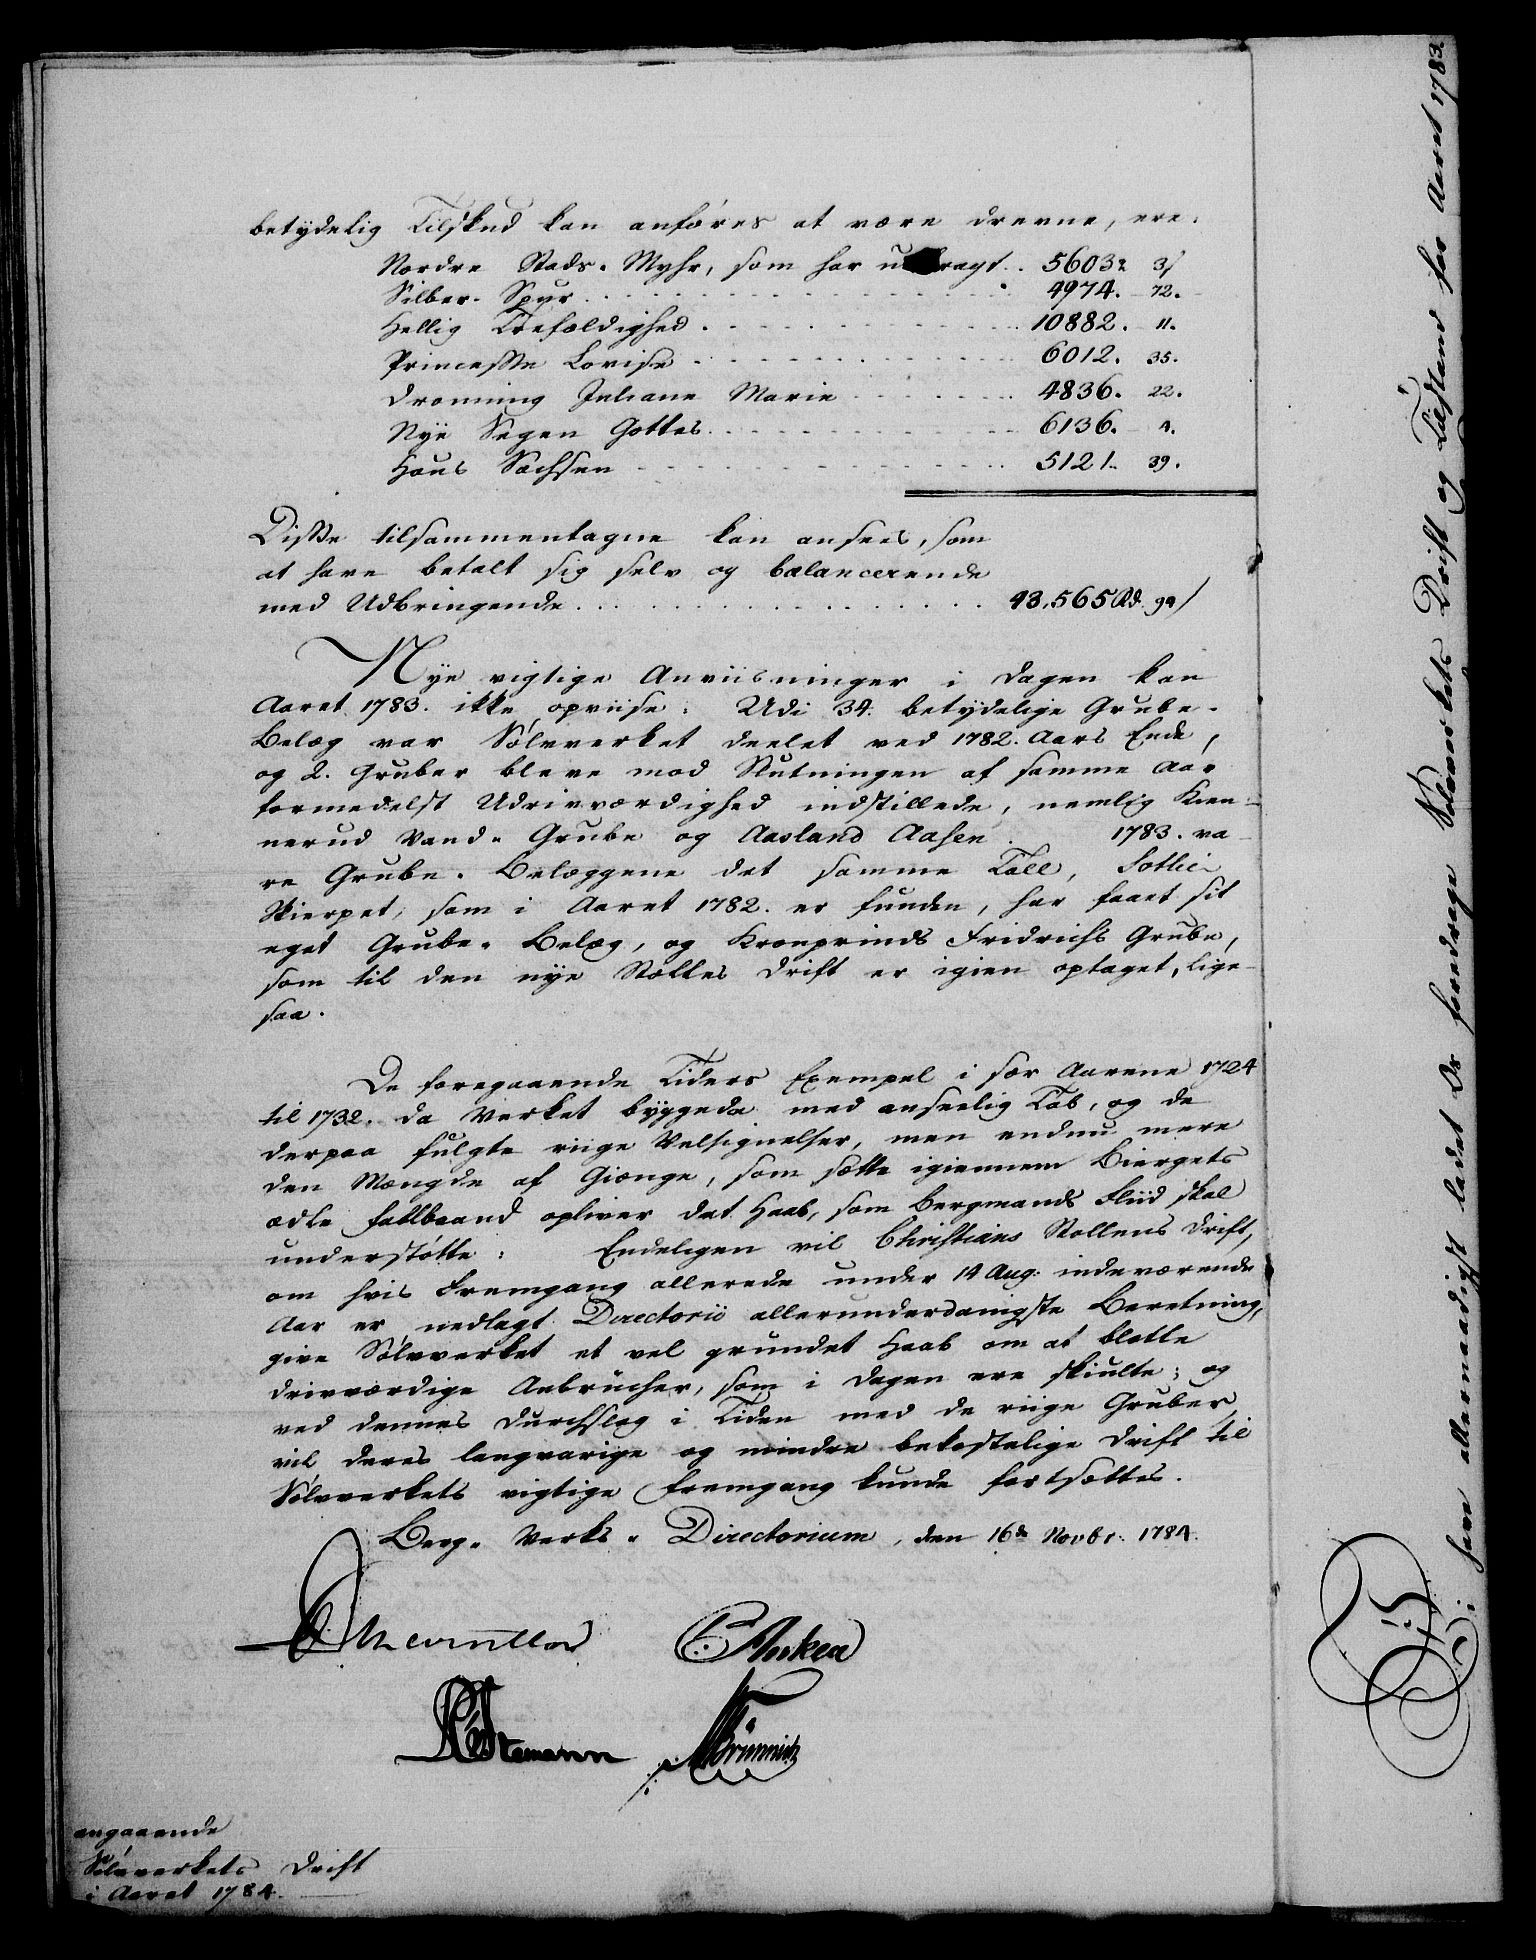 betydelig Tilskud kan anføres at være drevne, ere:
Nordre Stads-Myhr, som har udbragt.. 5603 3
Silber-Spur 4974. 72.
Hellig Trefoldighed 10882. 11.
Princesse Lovise 6012. 35.
Dronning Juliane Marie 4836. 22.
Nye Segen Gottes 6136. 4.
Haus Sachsen 5121. 39.
Disse tilsammentagne kan ansees, som
at have betalt sig selv og balancerende
med Udbringende 43,565 Rd. 94
Nye vigtige Anviisninger i Dagen kan
Aaret 1783. ikke opviise. Udi 34. betydelige Grube-
Belæg var Sølvverket deelet ved 1782. Aars Ende,
og 2. Gruber bleve mod Slutningen af samme Aar
formedelst Udrivværdighed indstillede, nemlig Kien-
nerud Vand-Grube og Aasland Aasen. 1783. va-
re Grube-Belæggene det samme Tall,
Skierpet, som i Aaret 1782. er funden, har faaet sit
eget Grube-Belæg, og Kronprinds Fridrichs Grube,
som til den nye Stolles Drift er igien optaget, lige-
saa.
De foregaaende Tiders Exempel i sær Aarene 1724
til 1732. da Verket byggede med anseelig Tab, og de
derpaa fulgte riige Velsignelser, men endnu mere
den Mængde af Gienge, som sætte igiennem Biergets
ædle Fallbaand opliver det Haab, som Bergmands Fliid skal
understøtte: Endeligen vil Christians Stollens Drift,
om hvis Fremgang allerede under 14 Aug: indeværende
Aar er nedlagt Directorii allerunderdanigste Beretning,
give Sølvverket et vel grundet Haab om at blotte
drivværdige Anbrücher, som i Dagen ere skiulte; og
ved dennes Durchslag i Tiden med de riige Gruber,
vil deres langvarige og mindre bekostelige Drift til
Sølvverkets vigtige Fremgang kunde fortsættes.
Berg-Verks-Directorium, den 16de Novbr. 1784.
C Anker
Stemann Brünnich
angaaende
Sølvverkets Drift
i Aaret 1784.
Vi have allernaadigst ladet Os foredrage Sølvverkets Drift og Tilstand for Aaret 1783